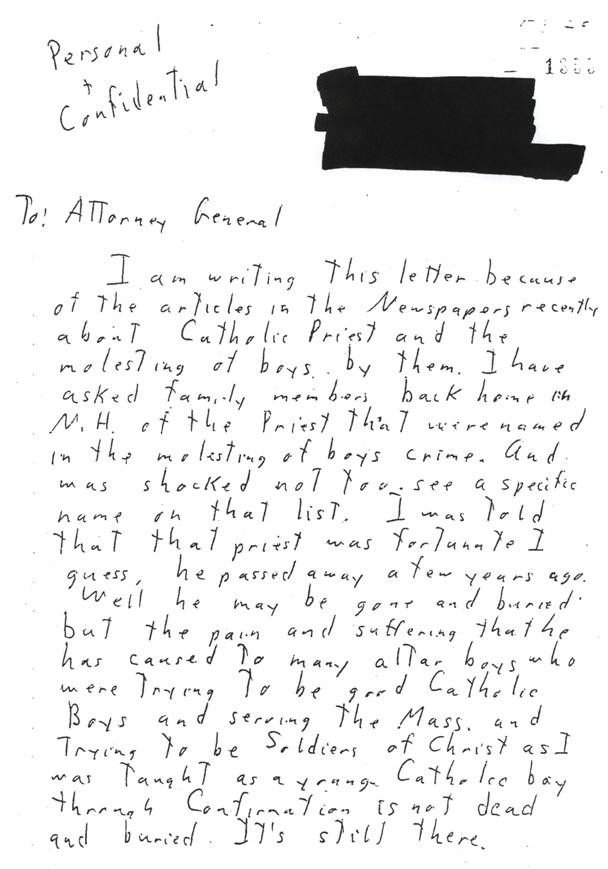 Personal
+
Confidential
To: Attorney General
I am writing this letter because
of the articles in the Newspapers recently
about Catholic Priest and the
molesting of boys by them. I have
asked family members back home in
N.H. of the Priest that were named
in the molesting of boys crime. And
was shocked not too see a specific
name on that list. I was told
that that priest was fortunate I
guess, he passed away a few years ago.
Well he may be gone and buried
but the pain and suffering that he
has caused to many altar boys who
were trying to be good Catholic
Boys and serving the Mass. and
Trying to be Soldiers of Christ as I
was Taught as a young Catholic boy
through Confirmation is not dead
and buried. It's still there.